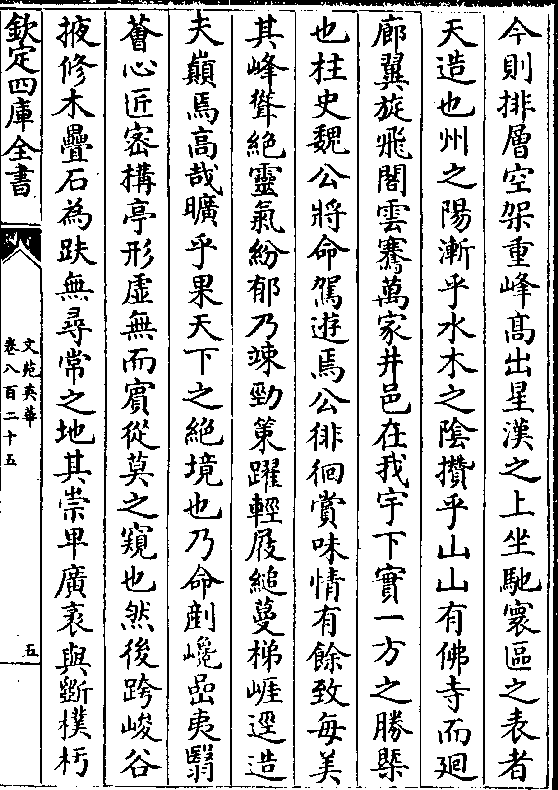 今則排層空架重峰髙出星漢之上坐馳寰區之表者
天造也州之陽漸乎水木之陰攢乎山山有佛寺而廻
廊翼旋飛閣雲騫萬家井邑在我宇下實一方之勝槩
也柱史魏公將命駕遊焉公徘徊賞味情有餘致每美
其峰聳絶靈氣紛郁乃竦勁策躍輕屐縋蔓梯崕逕造
夫巔焉高哉曠乎果天下之絶境也乃命剷巉嵒夷翳
薈心匠宻構亭形虛無而賓從莫之窺也然後跨峻谷
掖修木疊石為趺無尋常之地其崇卑廣袤與斵樸杇
欽定四庫全書
文苑英華
卷八百二十五
五